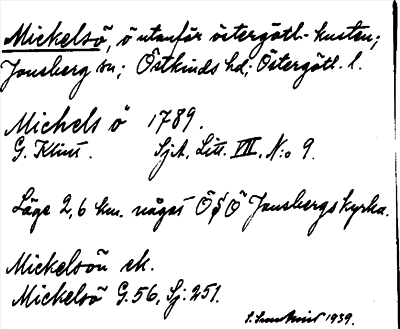 Mickelsö, ö utanför östergötl. kusten;
Jonsberg sn; Östkinds hd; Östergötl. l.
Michels ö 1789.
G. Klint. SjA, Litt. VII. N:o 9.
Läge 2,6 km. någet ÖSÖ Jonsbergs kyrka.
Mickelsön ek.
Mickelsö G.56, Sj. 251.
1939.